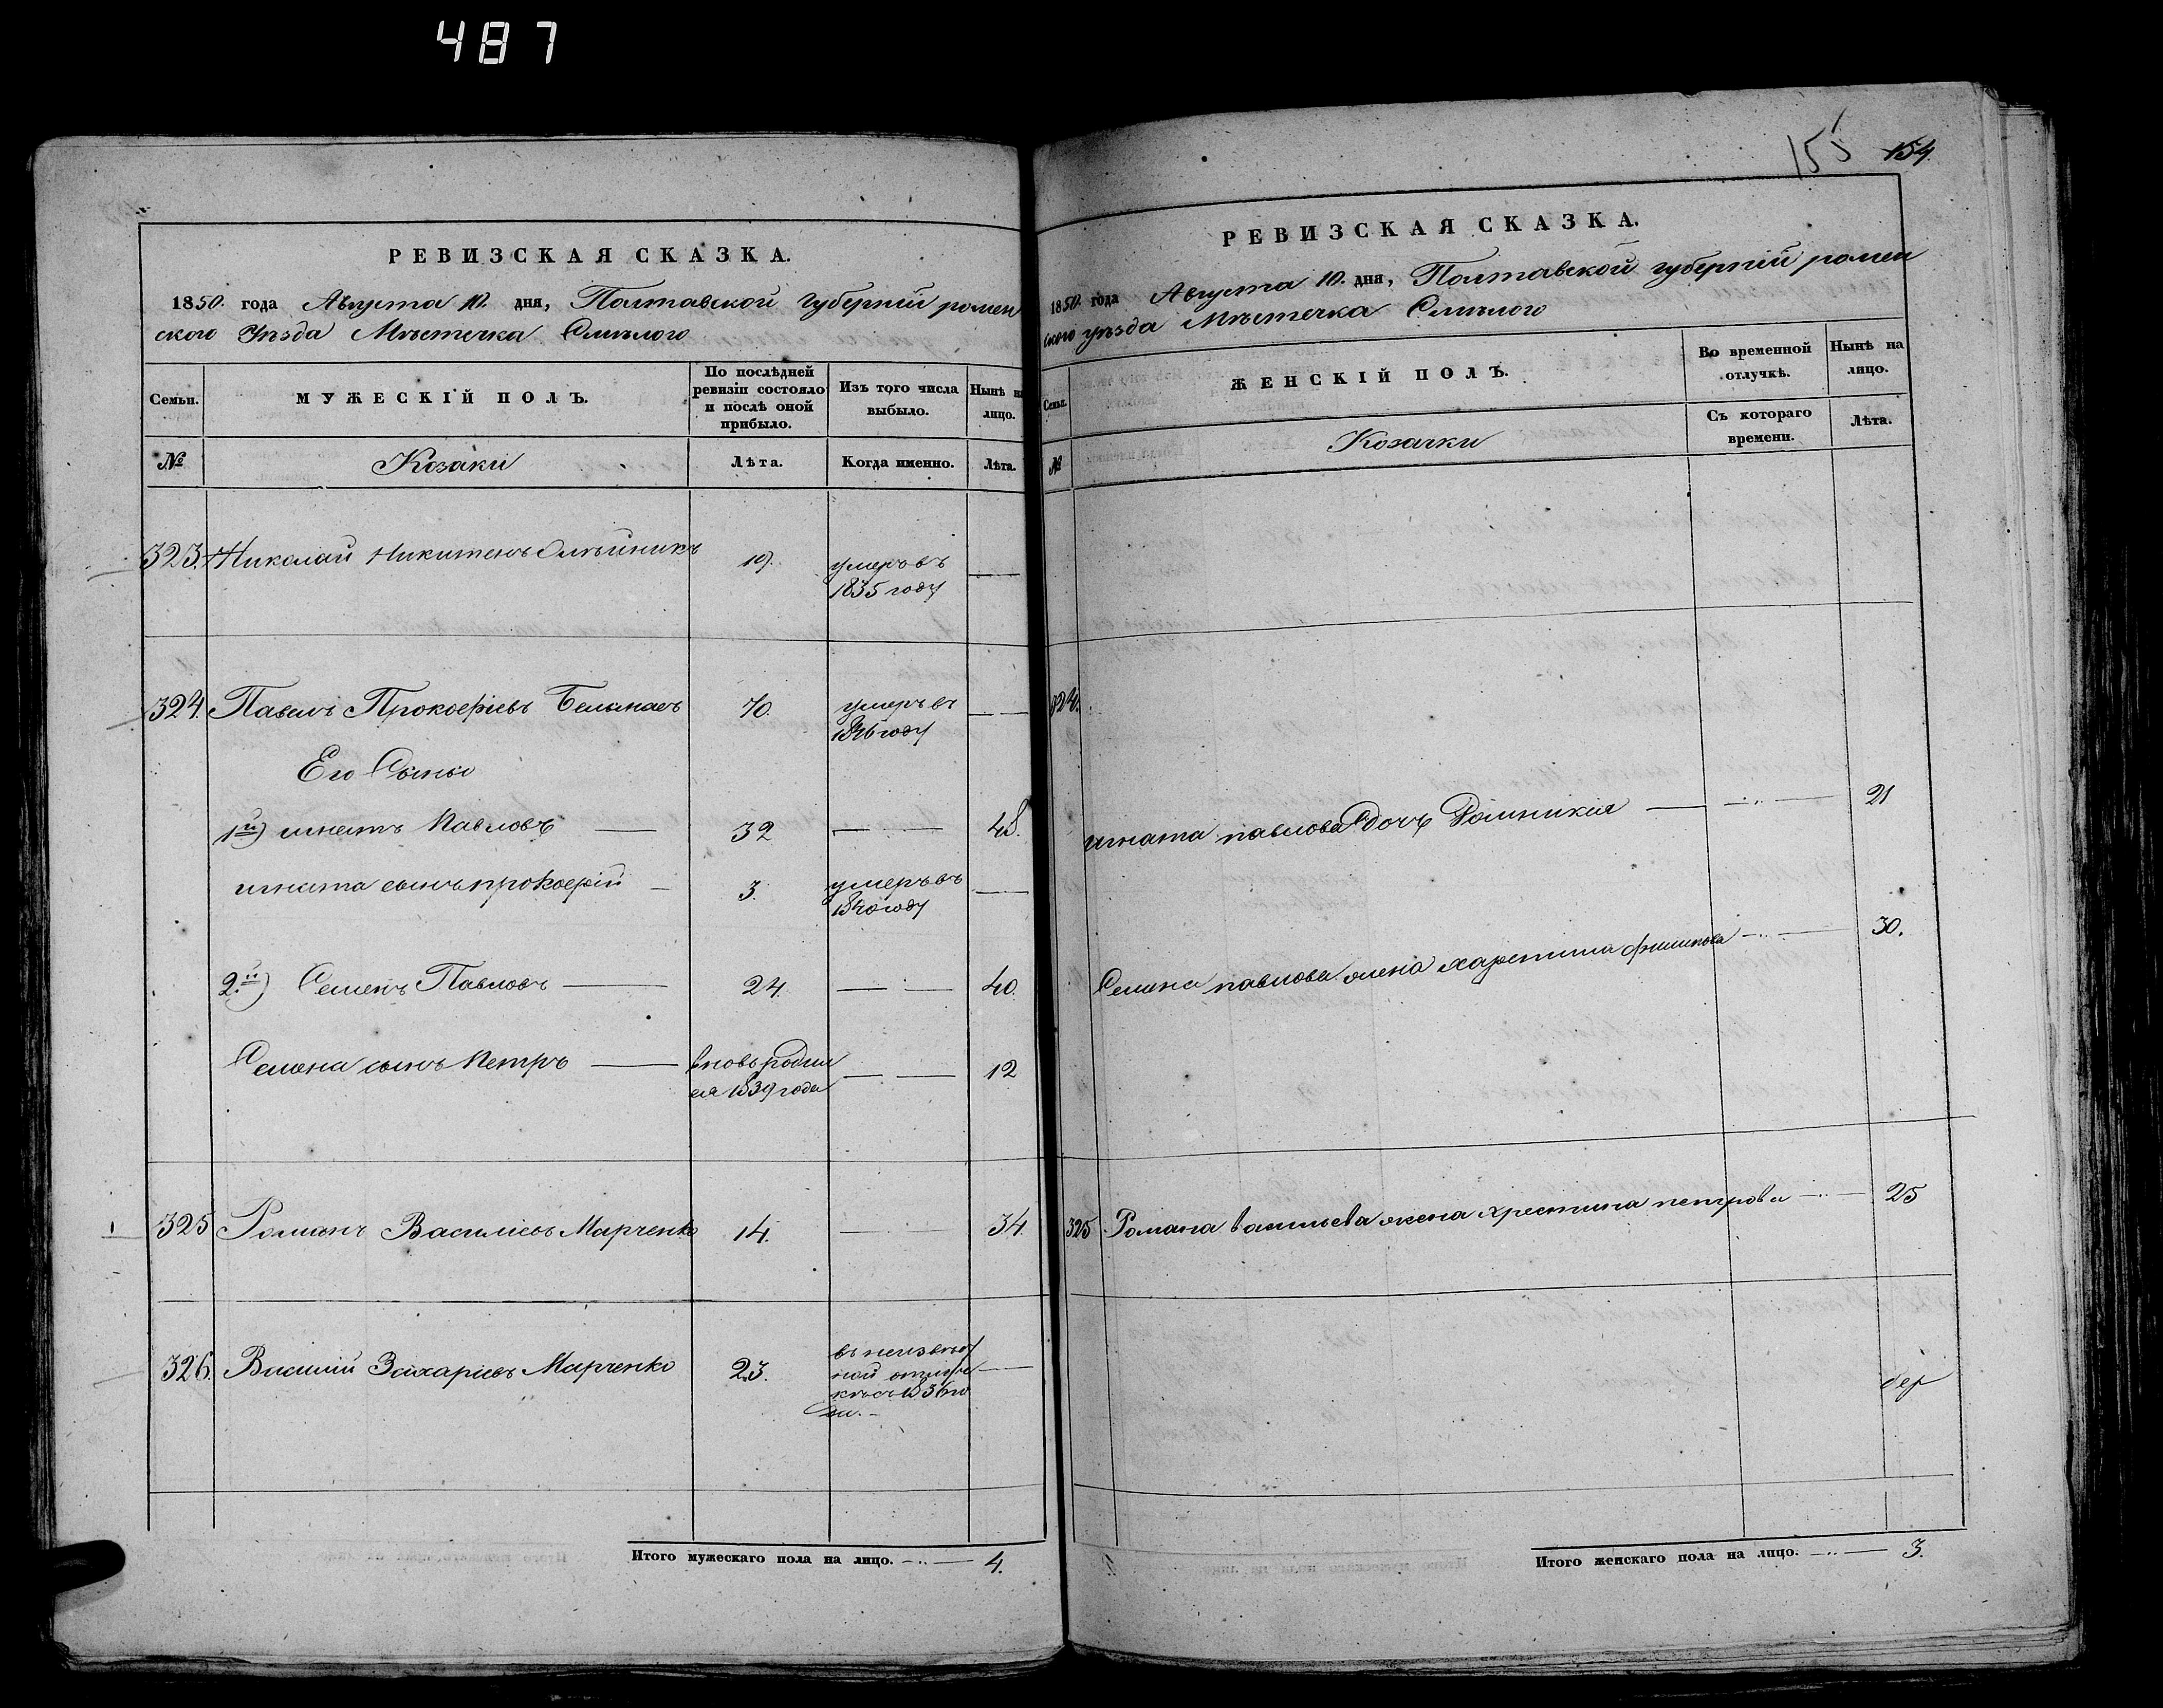 487
РЕВИЗСКАЯ СКАЗКА.
1850. года Августа 10. дня, Полтавской губерніи ромен
ского Уѣзда Мѣстечка Смѣлого
Семьи.
МУЖЕСКІЙ ПОЛЪ.
По послѣдней ревизіи состояло и послѣ оной прибыло.
Изъ того числа выбыло.
Нынѣ на лицо.
№
Козаки
Лѣта.
Когда именно.
Лѣта.
323. Николай Никитенъ Олѣйникъ 19. умеръ въ
1835 году
324. Павелъ Прокофіевъ 70. умеръ въ
1846 году
Его Сыны
1й) игнатъ Павловъ 32 48.
игната сынъ прокофій 3. умеръ въ
1840 году
2.й) Семенъ Павловъ 24. 40.
Семена сынъ Петръ вновь родил 12
ся 1839 года
325 Романъ Василіевъ Марченко 14. 34.
326. Василій Захаріевъ Марченко 23. въ неизвѣст
ной отлуч
кѣ съ 1836 го
да.
Итого мужескаго пола на лицо. 4.
155 154.
РЕВИЗСКАЯ СКАЗКА.
1850. года Августа 10. дня, Полтавской губерніи ромен
ского уѣзда Мѣстечка Смѣлого
Семьи.
ЖЕНСКІЙ ПОЛЪ.
Во временной отлучкѣ.
Нынѣ на лицо.
Съ котораго времени.
Лѣта.
№
Козачки
324.
игната павлова дочь Домникія 21
Семена павлова жена харетина филипова 30.
325 Романа васильева жена хрестина петрова 25
Итого женскаго пола на лицо. 3.